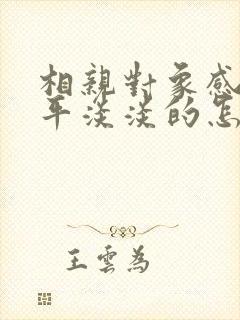 相親對象感
平淡淡的怎
王雲為